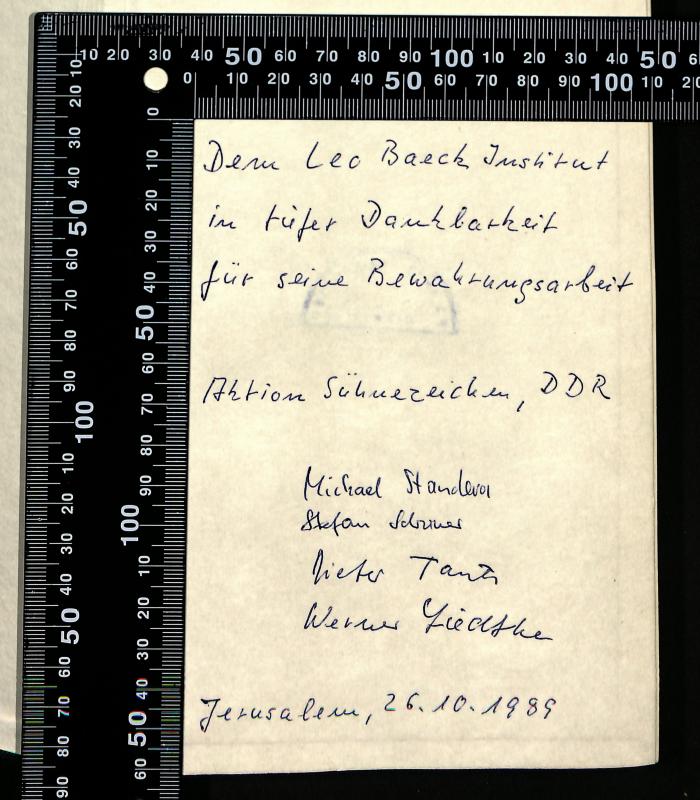 Dem Leo Baeck Institut
in tiefer Dankbarkeit
für seine Bewahrungsarbeit
Aktion Sühnezeichen, DDR
Michael Standera
Stefan
Dieter
Werner Liedtke
Jerusalem, 26.10.1989